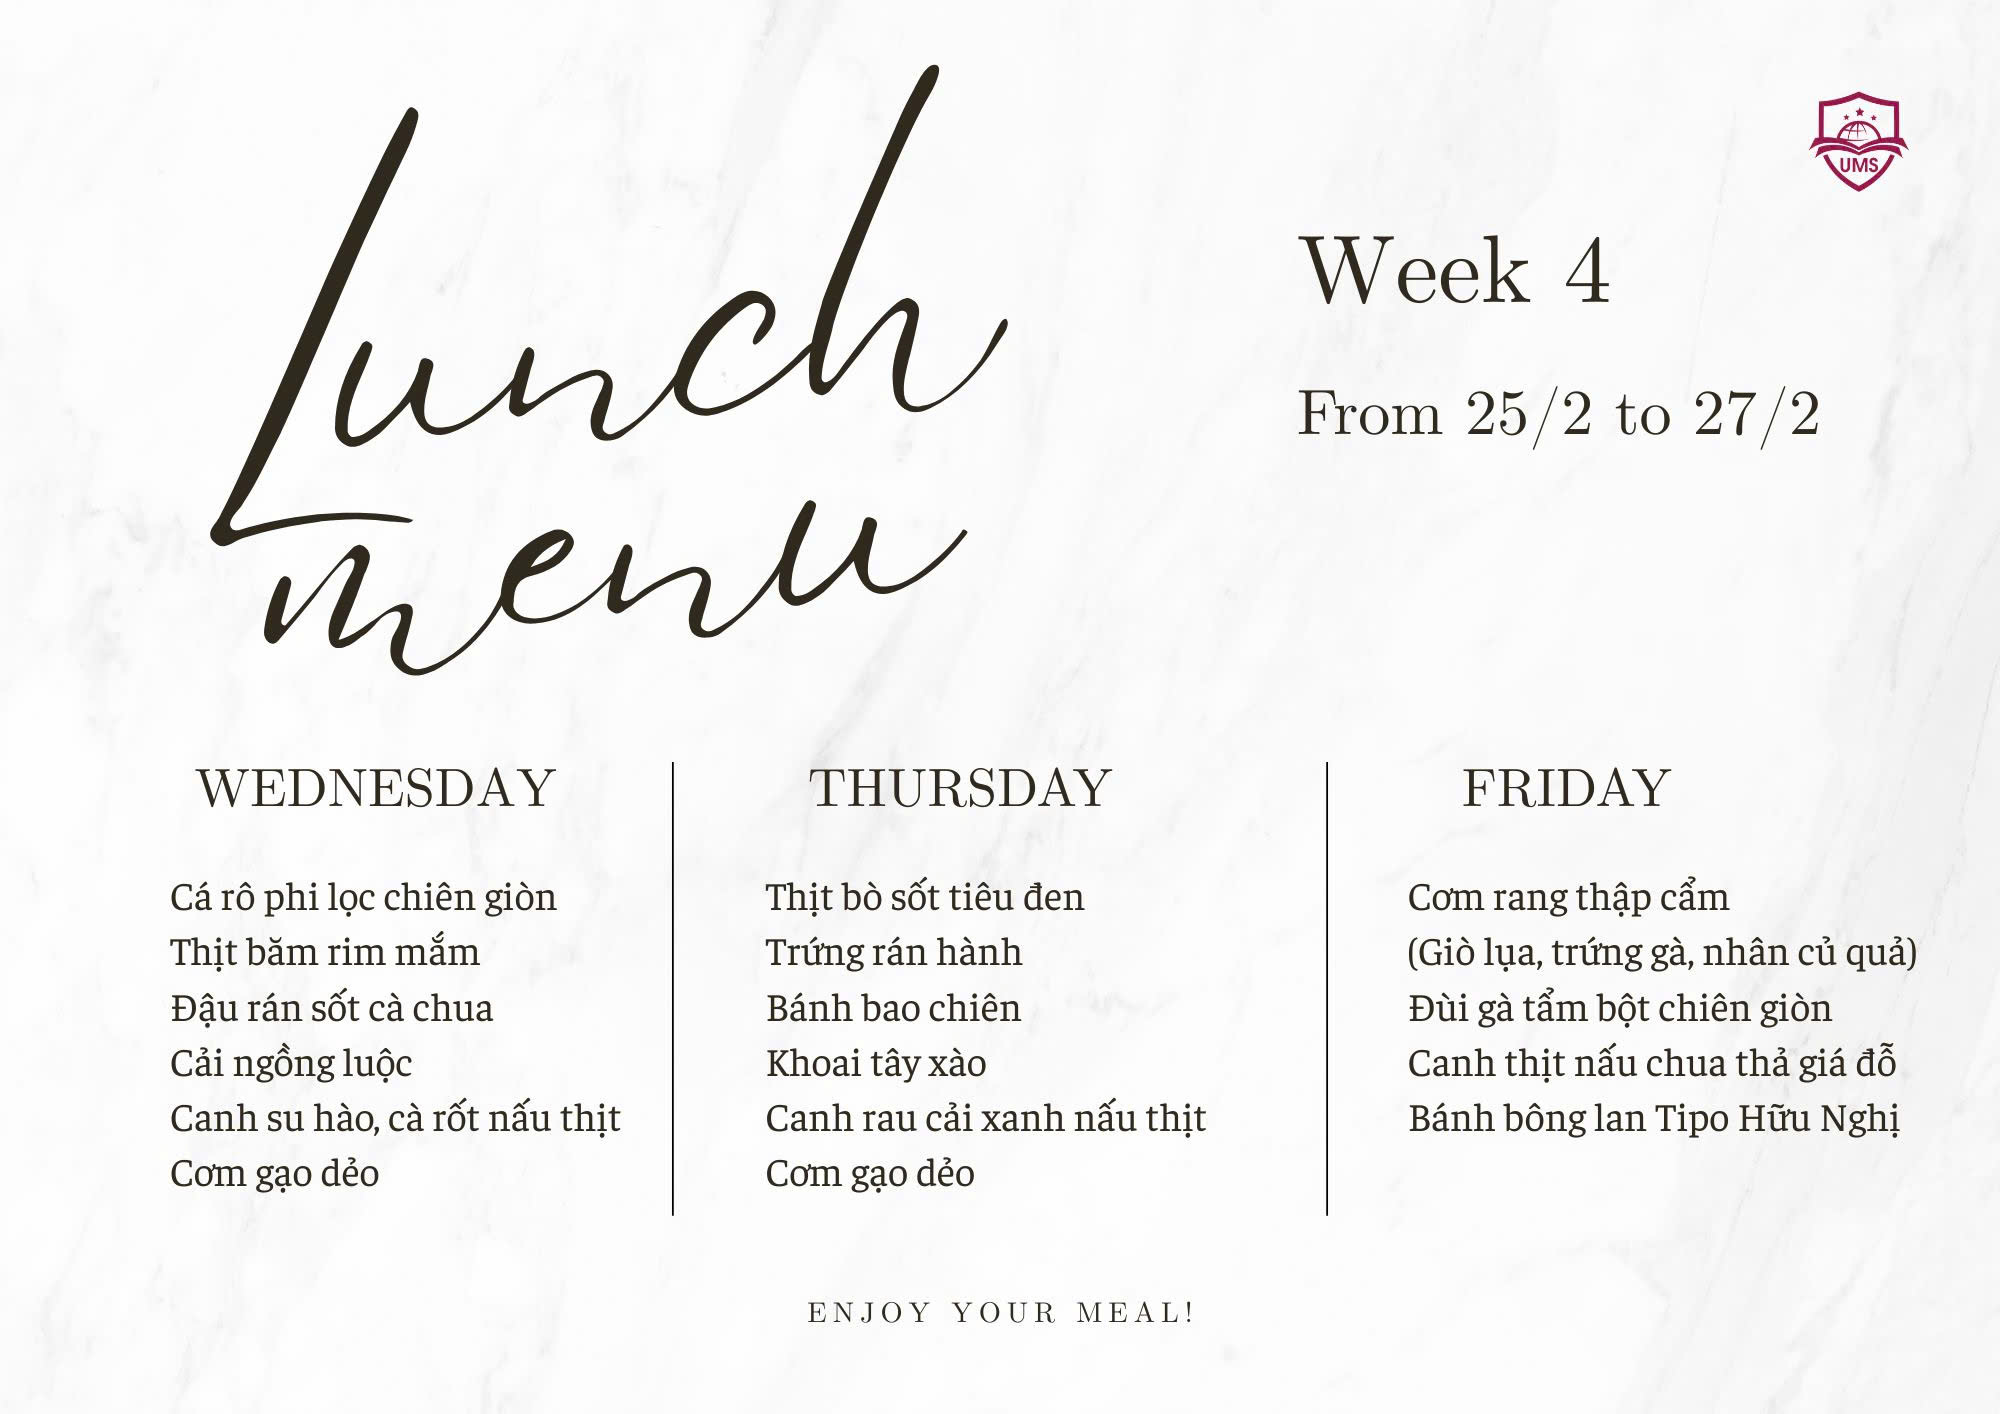 Lunch
menu
UMS
Week 4
From 25/2 to 27/2
WEDNESDAY
Cá rô phi lọc chiên giòn
Thịt băm rim mắm
Đậu rán sốt cà chua
Cải ngồng luộc
Canh su hào, cà rốt nấu thịt
Cơm gạo dẻo
THURSDAY
Thịt bò sốt tiêu đen
Trứng rán hành
Bánh bao chiên
Khoai tây xào
Canh rau cải xanh nấu thịt
Cơm gạo dẻo
FRIDAY
Cơm rang thập cẩm
(Giò lụa, trứng gà, nhân củ quả)
Đùi gà tẩm bột chiên giòn
Canh thịt nấu chua thả giá đỗ
Bánh bông lan Tipo Hữu Nghị
ENJOY YOUR MEAL!